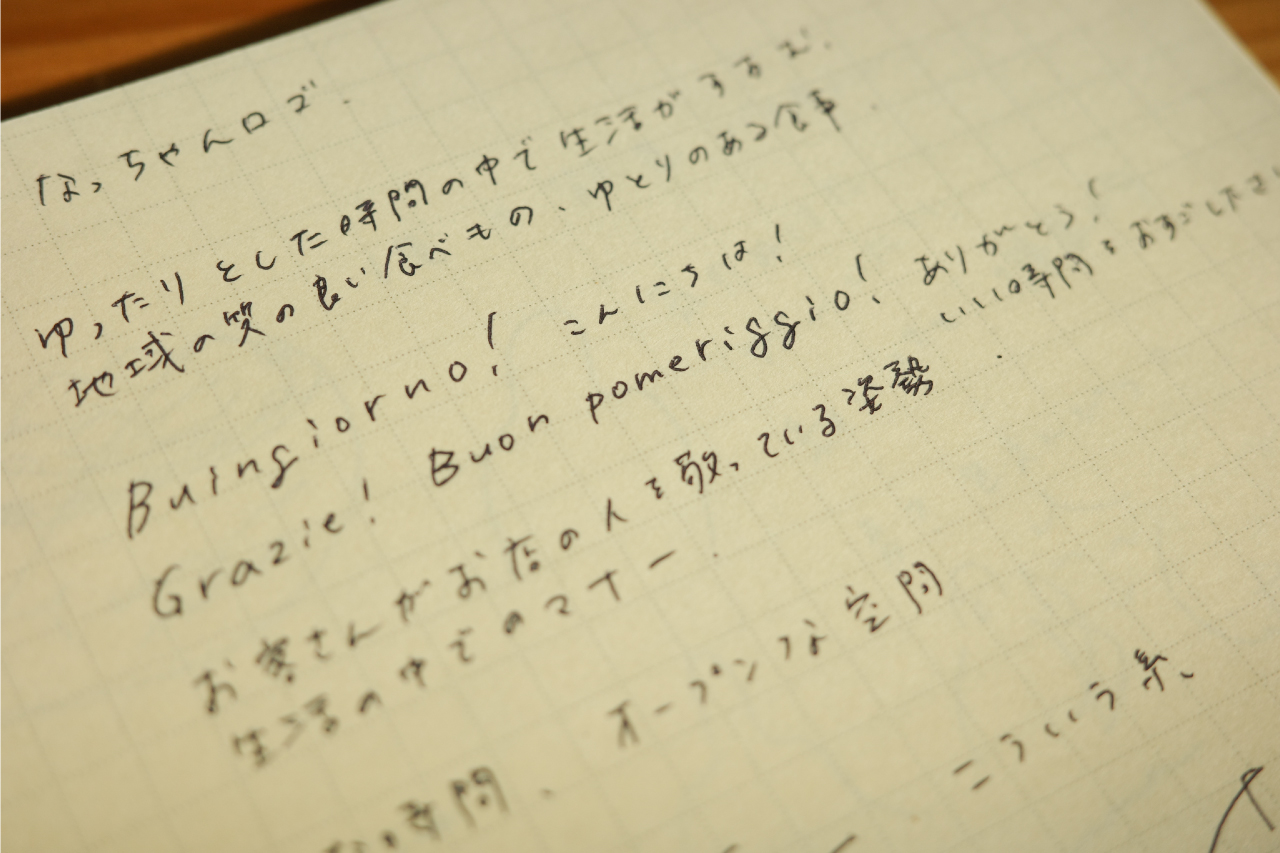 なっちゃんロゴ.
ゆったりとした時間の中で生活がすすむ.
地域の質の良い食べもの、ゆとりのある食事.
Buingiorno! こんにちは!
Grazie! Buon pomeriggio! ありがとう!
いい時間をおすごしださい
お客さんがお店の人を敬っている姿勢.
生活の中でのマナー.
時間、オープンな空間
こういう系、